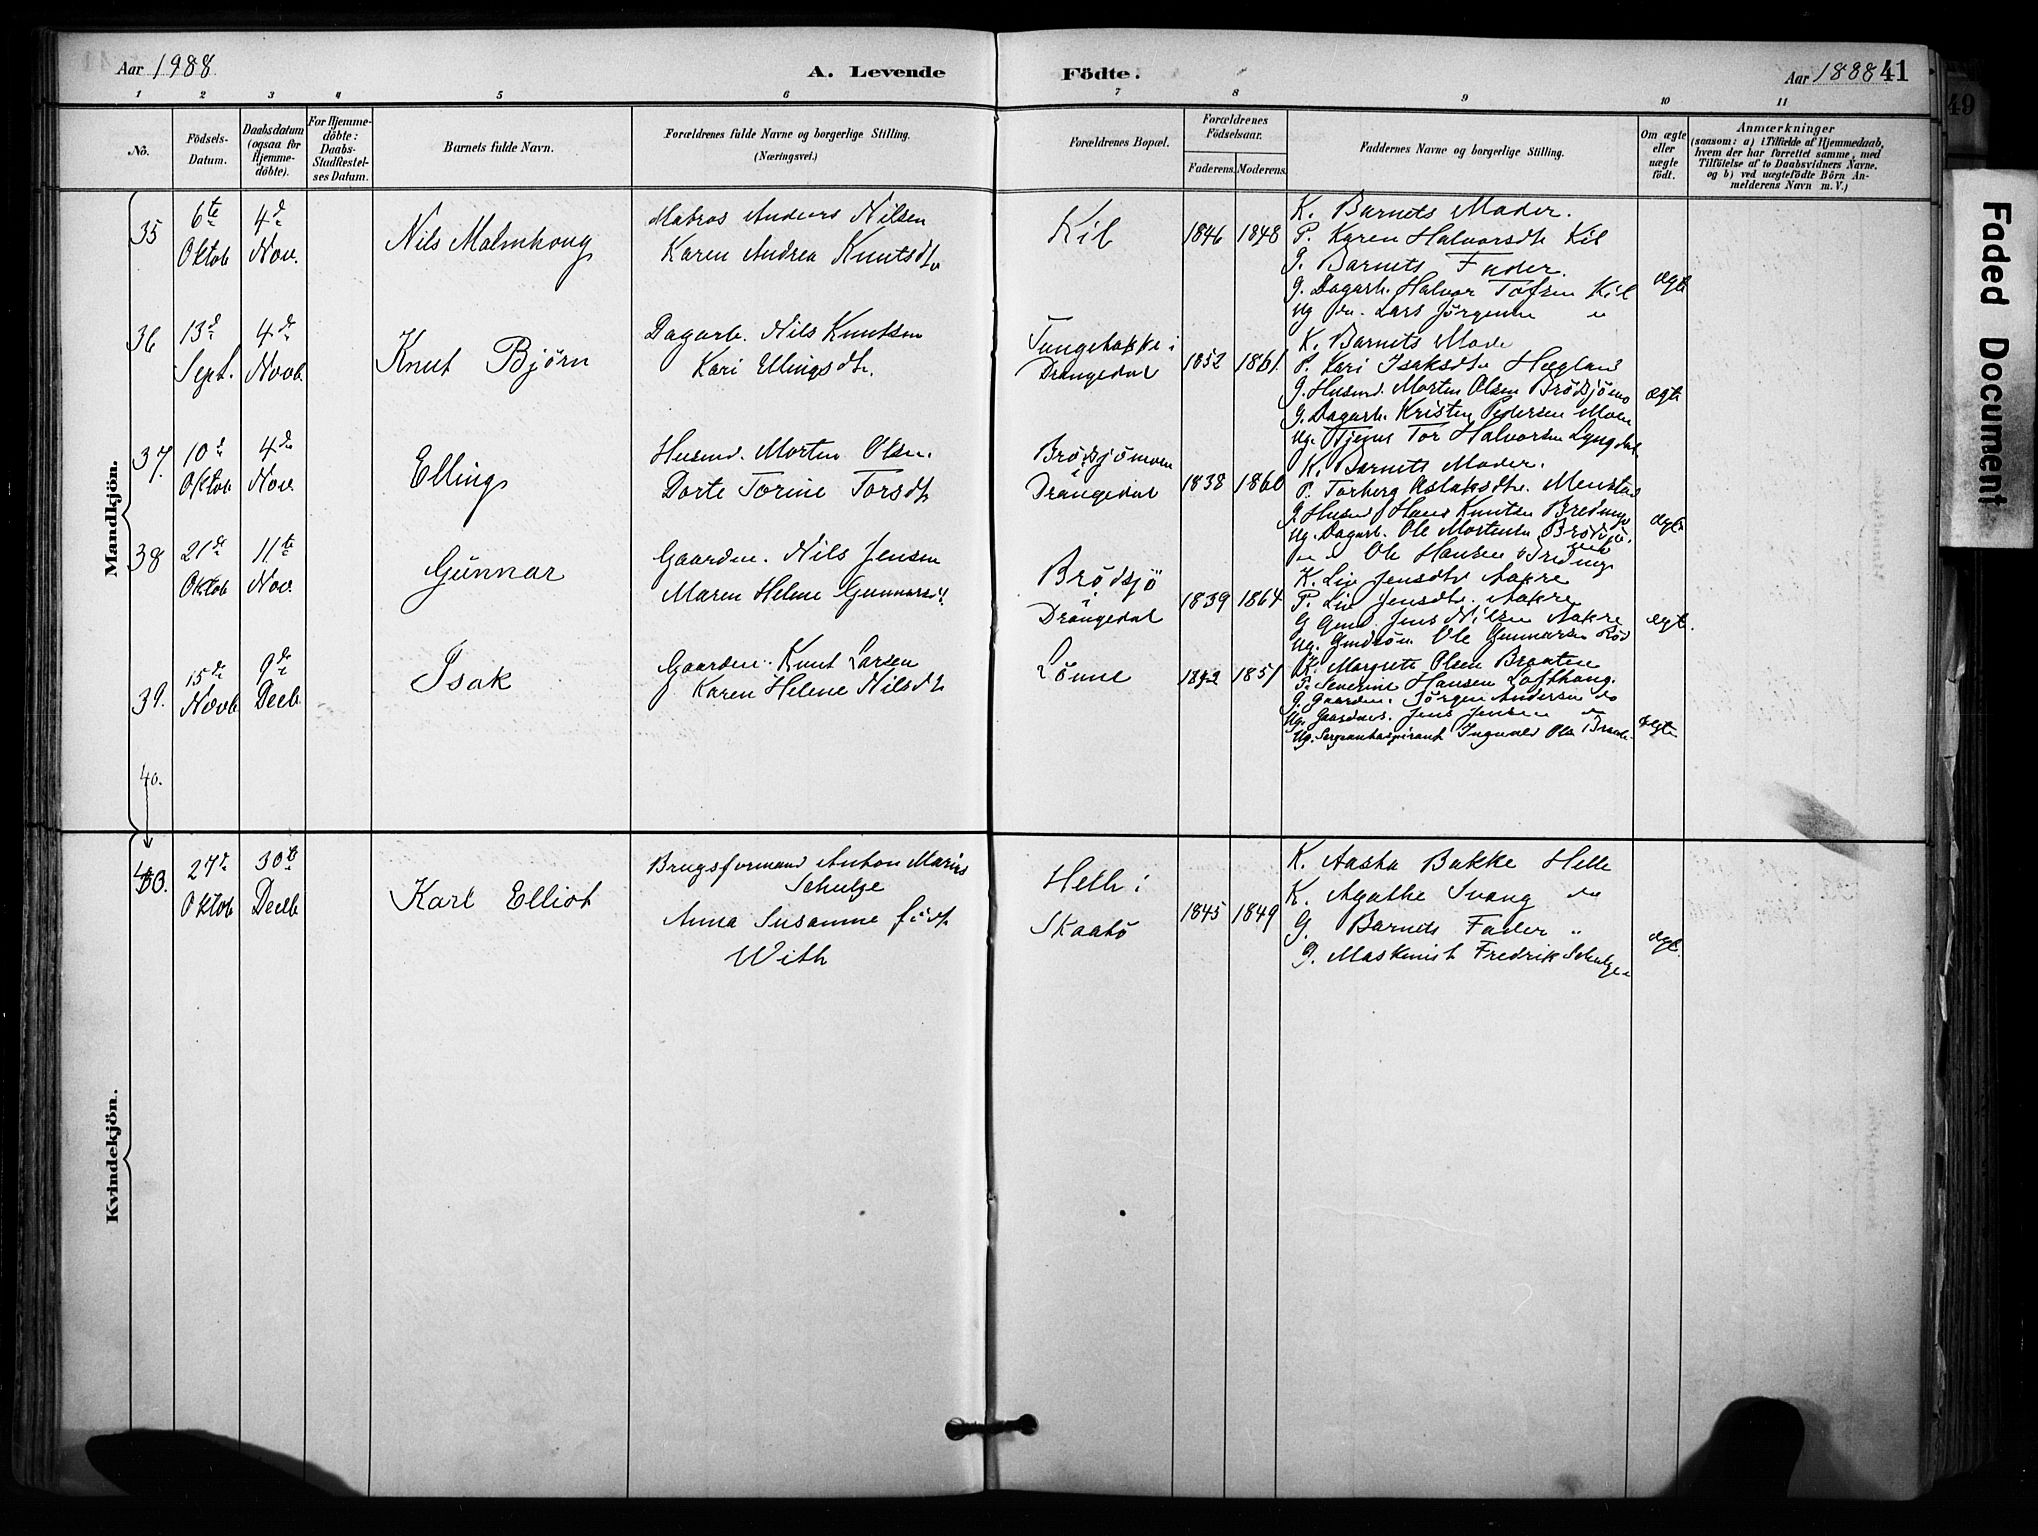 Aar 1988
A. Levende
Födte.
Aar 1888
41
49
1 2 3 4 5 6 7 8 9 10 11
No.
Födsels-
Datum.
Daabsdatum
(ogsaa for
Hjemme-
döbte).
For Hjemme-
döbte:
Daabs-
Stadfæstel-
ses Datum.
Barnets fulde Navn.
Forældrenes fulde Navne og borgerlige Stilling.
(Næringsvei.)
Forældrenes Bopæl.
Forældrenes
Födselsaar.
Faderens. Moderens.
Faddernes Navne og borgerlige Stilling.
Om ægte
eller
uægte
født.
Anmærkninger
(saasom: a) i Tilfælde af Hjemmedaab,
hvem der har forrettet samme, med
Tilföielse af to Daabsvidners Navne.
og b) ved uægtefödte Börn An-
melderens Navn m. V.)
Mandkjön.
35
6te
Oktob
4d
Nov.
Nils Malmhoug
Matros Anders Nilsen
Karen Andrea Knutsdtr
Kil
1846 1848
K. Barnets Moder.
P. Karen Halvorsdtr Kil
G. Barnets Fader.
G. Dagarb. Halvor Tofsen Kil
Ug do. Lars Jörgensen "
ægte
36
13d
Sept.
4de
Novb
Knut Björn
Dagarb. Nils Knutsen
Kari Ellingsdtr.
i
Drangedal
1852 1861
K. Barnets Mode
P. Kari Isaksdtr Hægland
G. Husmd. Morten Olsen Brödsjömo
G. Dagarb. Kristen Pedersen Moen
Ug. Tjenes Tor Halvorsen Lyngdal
ægte
37.
10d
Oktob
4de
Nov.
Elling
Husmd. Morten Olsen.
Dorte Torine Torsdtr
Brödsjömoen
i
Drangedal
1838 1860
K. Barnets Moder.
P. Torberg Aslaksdtr. Menstad
G. Husmd Hans Knutsen
Ug. Dagarb. Ole Mortensen Brödsjö.
Ole Hansen
ægte
38
21de
Oktob
11te
Nov.
Gunnar
Gaardm. Nils Jensen
Maren Helene Gunnarsd.
Brödsjö
i
Drangedal
1839 1864
K. Liv Jensdtr Aakre
P. Liv Jensdtr. Aakre
G Gmd. Jens Nilsen Aakre
Ug. Gmdsön Ole Gunnarsen Röd
ægte.
39.
15de
Novb
9de
Decb
Isak
Gaardm. Knut Larsen
Karen Helene Nilsdtr
Lönne
1851
K. Margrete Olsen Braaten
P. Severine Hansen Lofthaug.
G. Gaardm. Jörgen Andersen do
Ug. Gaardms. Jens Jensen do
Ug. Sergeantaspirant Ingvald Ols
ægte
40.
Kvindekjön.
27d
Oktob
30te
Decb
Karl Elliot
Brugsformand Anton Marius
Schulze
Anna Susanne født
With
Helle i
Skaatö
1845 1849
K. Aasta Bakke Helle
K. Agathe Svang do
G. Barnets Fader "
G. Maskinist Fredrik Schulze
ægte.
Faded Document